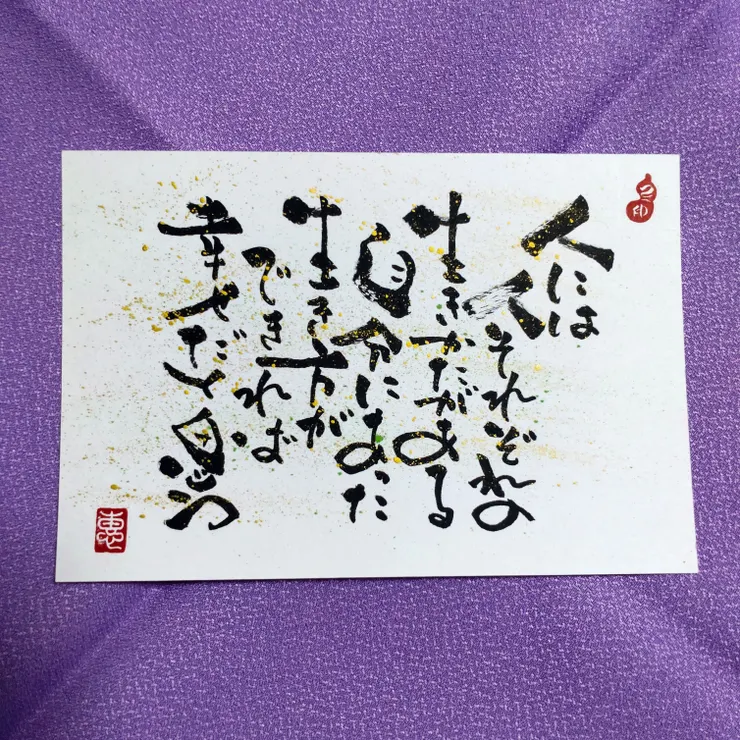 人には
人それぞれの
生きかたがある
自分にあった
生き方が
できれば
幸せだと思う
恵